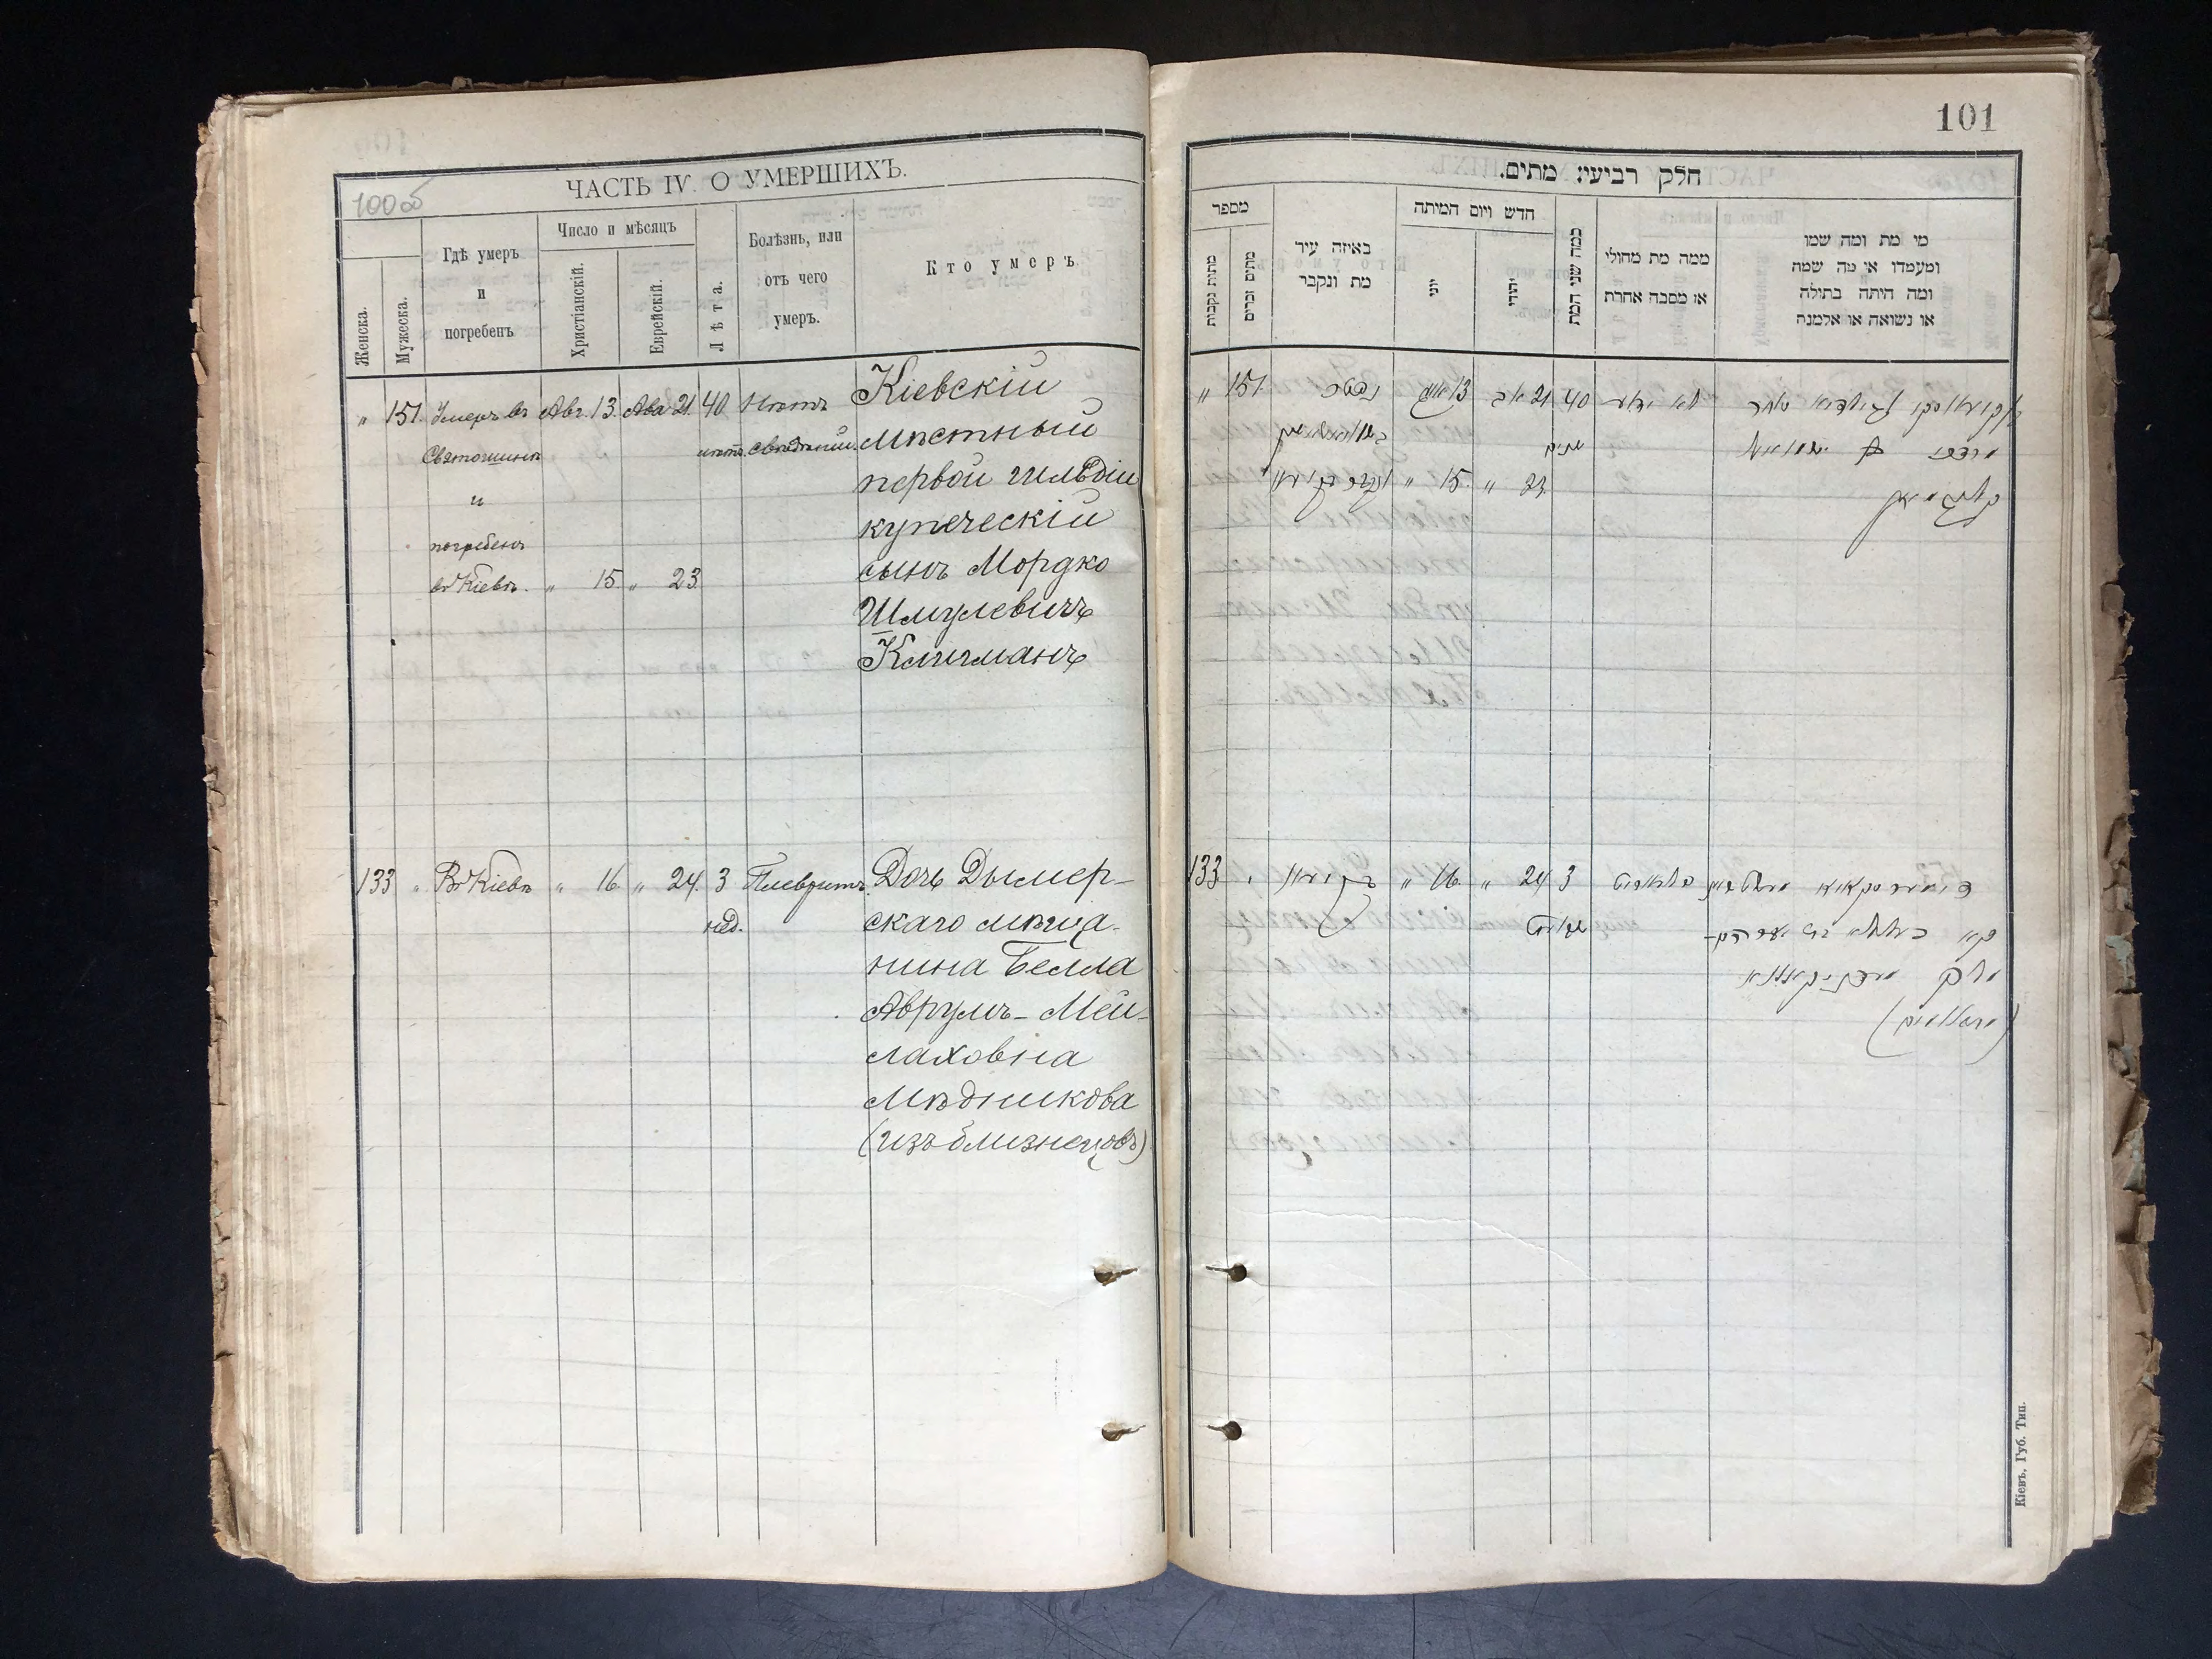 100об
ЧАСТЬ IV. О УМЕРШИХЪ.
Женска.
Мужеска.
Гдѣ умеръ
и
погребенъ
Число и мѣсяцъ
Христіанскій.
Еврейскій.
Лѣта.
Болѣзнь, или
отъ чего
умеръ.
Кто умеръ.
" 151. Умеръ въ Авг. 13. Ава 21. 40 Нѣтъ Кіевскій
Святошинѣ лѣтъ. свѣдѣній. мѣстный
и первой гильдіи
купеческій
погребенъ
въ Кіевѣ. " 15. " 23. сынъ Мордко
Шмулевичъ
Клигманъ
133 " Въ Кіевѣ " 16. " 24. 3 Плевритъ. Дочь Дымер-
нед. скаго мѣща-
нина Белла
Аврумъ-Мей-
лаховна
Мѣдникова
(изъ близнецовъ)
101
חלק רביעי: מתים.
מספר
מתות נקבות
מתים זכרים
באיזה עיר
מת ונקבר
חדש ויום המיתה
יוני
יהודי
כמה שני המת
ממה מת מחולי
או מסבה אחרת
מי מת ומה שמו
ומעמדו או מה שמה
ומה היתה בתולה
או נשואה או אלמנה
" 151. נפטר 13 אוג 21 אב 40 לא ידוע
שנים
" 15. " 23.
133 " " 16. " 24 3
Кіевъ, Губ. Тип.